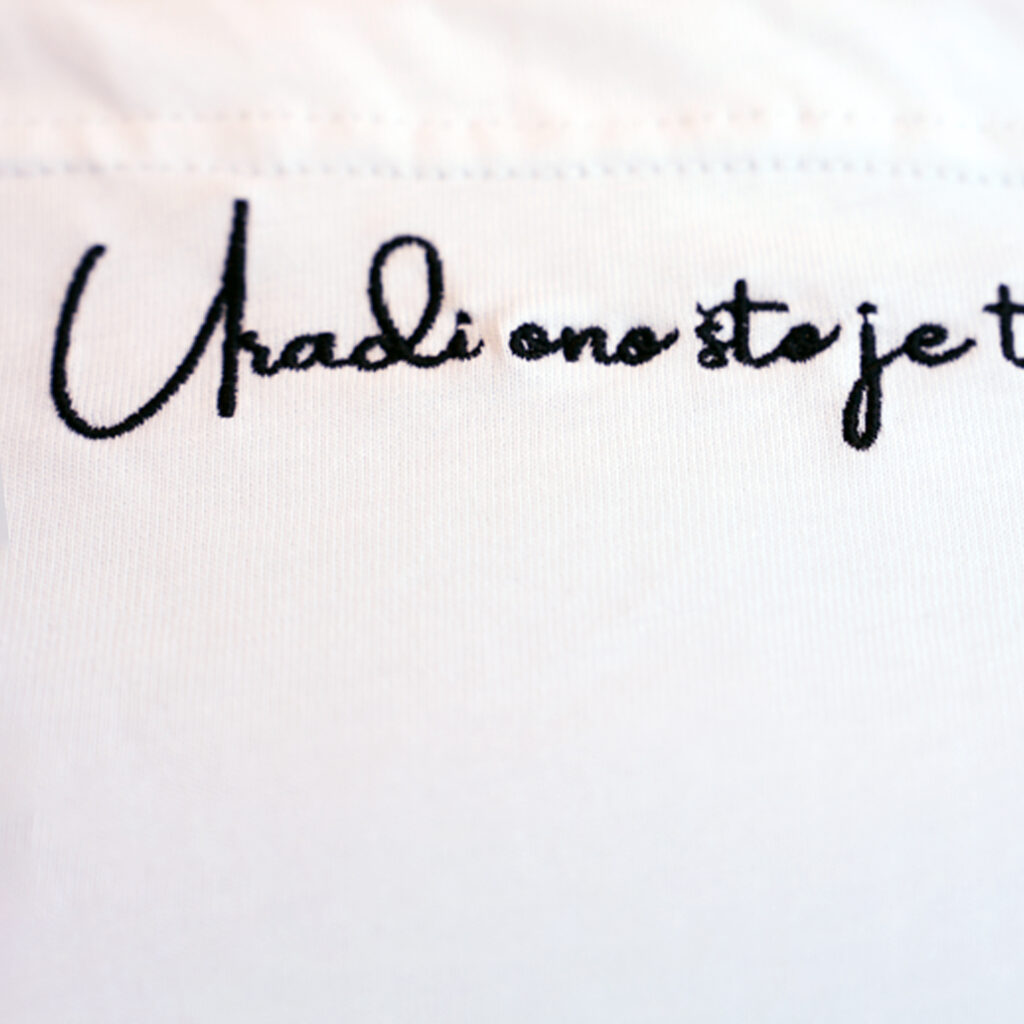 Uradi ono što je t